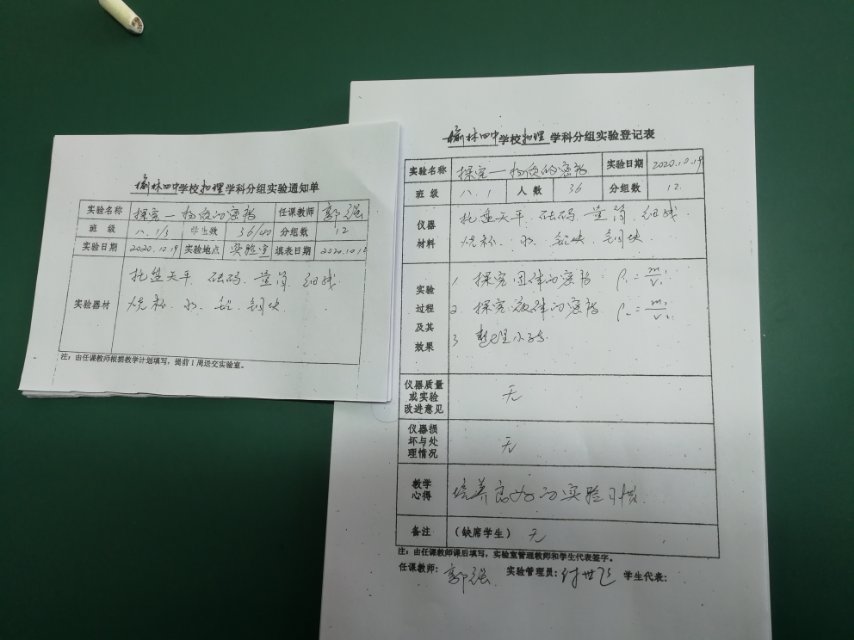 榆林四中学校物理学科分组实验通知单
实验名称 探究一物质的密度 任课教师 郭强
班 级 八.1/3 学生数 36/40 分组数 12
实验日期 2020.10.19 实验地点 实验室 填表日期 2020.10.12
实验器材 托盘天平 砝码 量筒 细线
烧杯 水 铝 铜块
注：由任课教师根据教学计划填写，提前1周送交实验室。
榆林四中学校物理学科分组实验登记表
实验名称 探究一物质的密度 实验日期 2020.10.19
班 级 八.1 人 数 36 分组数 12.
仪器材料 托盘天平 砝码 量筒 细线
烧杯 水 铝块 铜块
实验过程及其效果
1. 探究固体的密度 ρ₁=m₁/v₁
2. 探究液体的密度 ρ₂=m₂/v₂
3. 整理小结
仪器质量或实验改进意见 无
仪器损坏与处理情况 无
教学心得 培养良好的实验习惯
备注 （缺席学生） 无
注：由任课教师课后填写，实验室管理教师和学生代表签字。
任课教师：郭强 实验管理员：付世飞 学生代表：